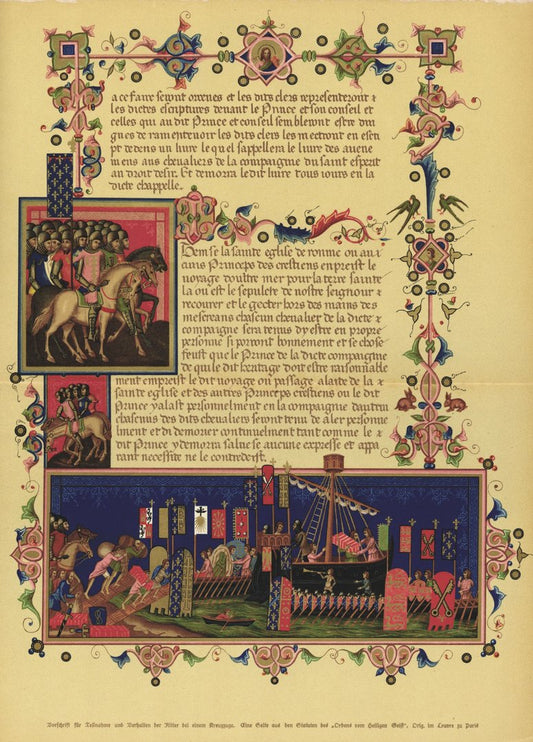 a ce faire seront ordenes et les dits clers representeront &
les dictes escriptures devant le Prince et son conseil et
celles qui au dit Prince et conseil sembleront estre di
gnes de ramentevoir les dits clers les mectront en escri
pt dedens un livre le quel s'appellera le livre des avene
mens aus chevaliers de la compaignie du saint esperit
au droit desir. Et demorra le dit livre tous iours en la
dicte chappelle.
Item se la sainte eglise de romme ou au&
cuns Princeps des crestiens enpreist le
voyage doultre mer pour la terre sainte
la ou est le sepulcre de nostre seignour &
recovrer et le gecter hors des mains des
mescreans chascun chevalier de la dicte &
compaignie sera tenus dy estre en propre
personne si porront bonnement et se chose
feust que le Prince de la dicte compaignie
de qui le dit heritage doit estre raisonnable
ment empreist le dit voyage ou passage alaide de la &
sainte eglise et des autres Princeps crestiens ou le dit
Prince y alast personnelment en la compaignie dautrui
chascuns des dits chevaliers seront tenu de aler personne
lment et di demorer continuelment tant comme le &
dit Prince y demorra salue se aucune expresse et appa
rant necessite ne le contredeist.
Vorschrift für Teilnahme und Verhalten der Ritter bei einem Kreuzzuge. Eine Seite aus den Statuten des „Ordens vom Heiligen Geist“, Orig. im Louvre zu Paris